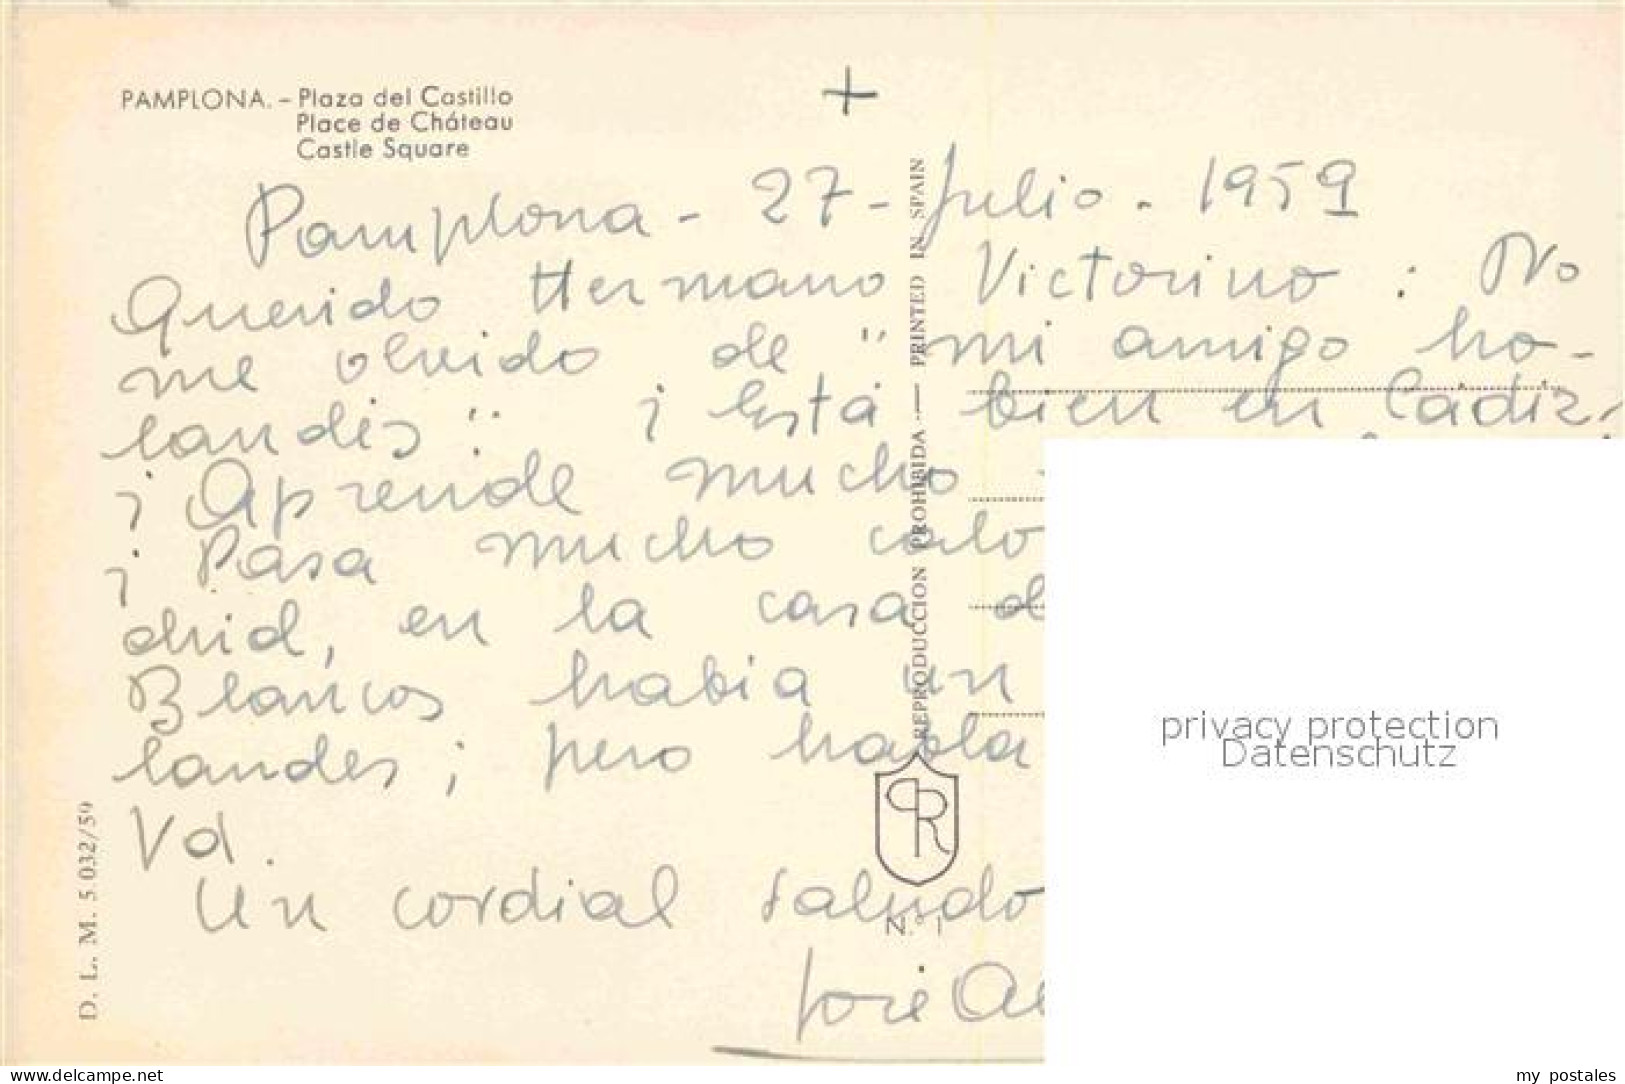 PAMPLONA. – Plaza del Castillo
Place de Cháteau
Castle Square
+
Pamplona - 27 - Julio - 1959
Querido Hermano Victorino : No
me olvido de " mi amigo ho-
landés " ¿ Está bien en Cádiz,
¿ Aprende mucho
¿ Pasa mucho calo
drid, en la casa d
Blancos había un
landes ; pero habla
Vd.
Un cordial saludo
José
REPRODUCCION PROHIBIDA — PRINTED IN SPAIN
PR
N.º 1
D. L. M. 5 032/59
privacy protection
Datenschutz
www.delcampe.net
my_postales